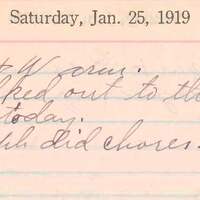 Saturday, Jan. 25, 1919
Warm.
ked out to th
today.
did chores.